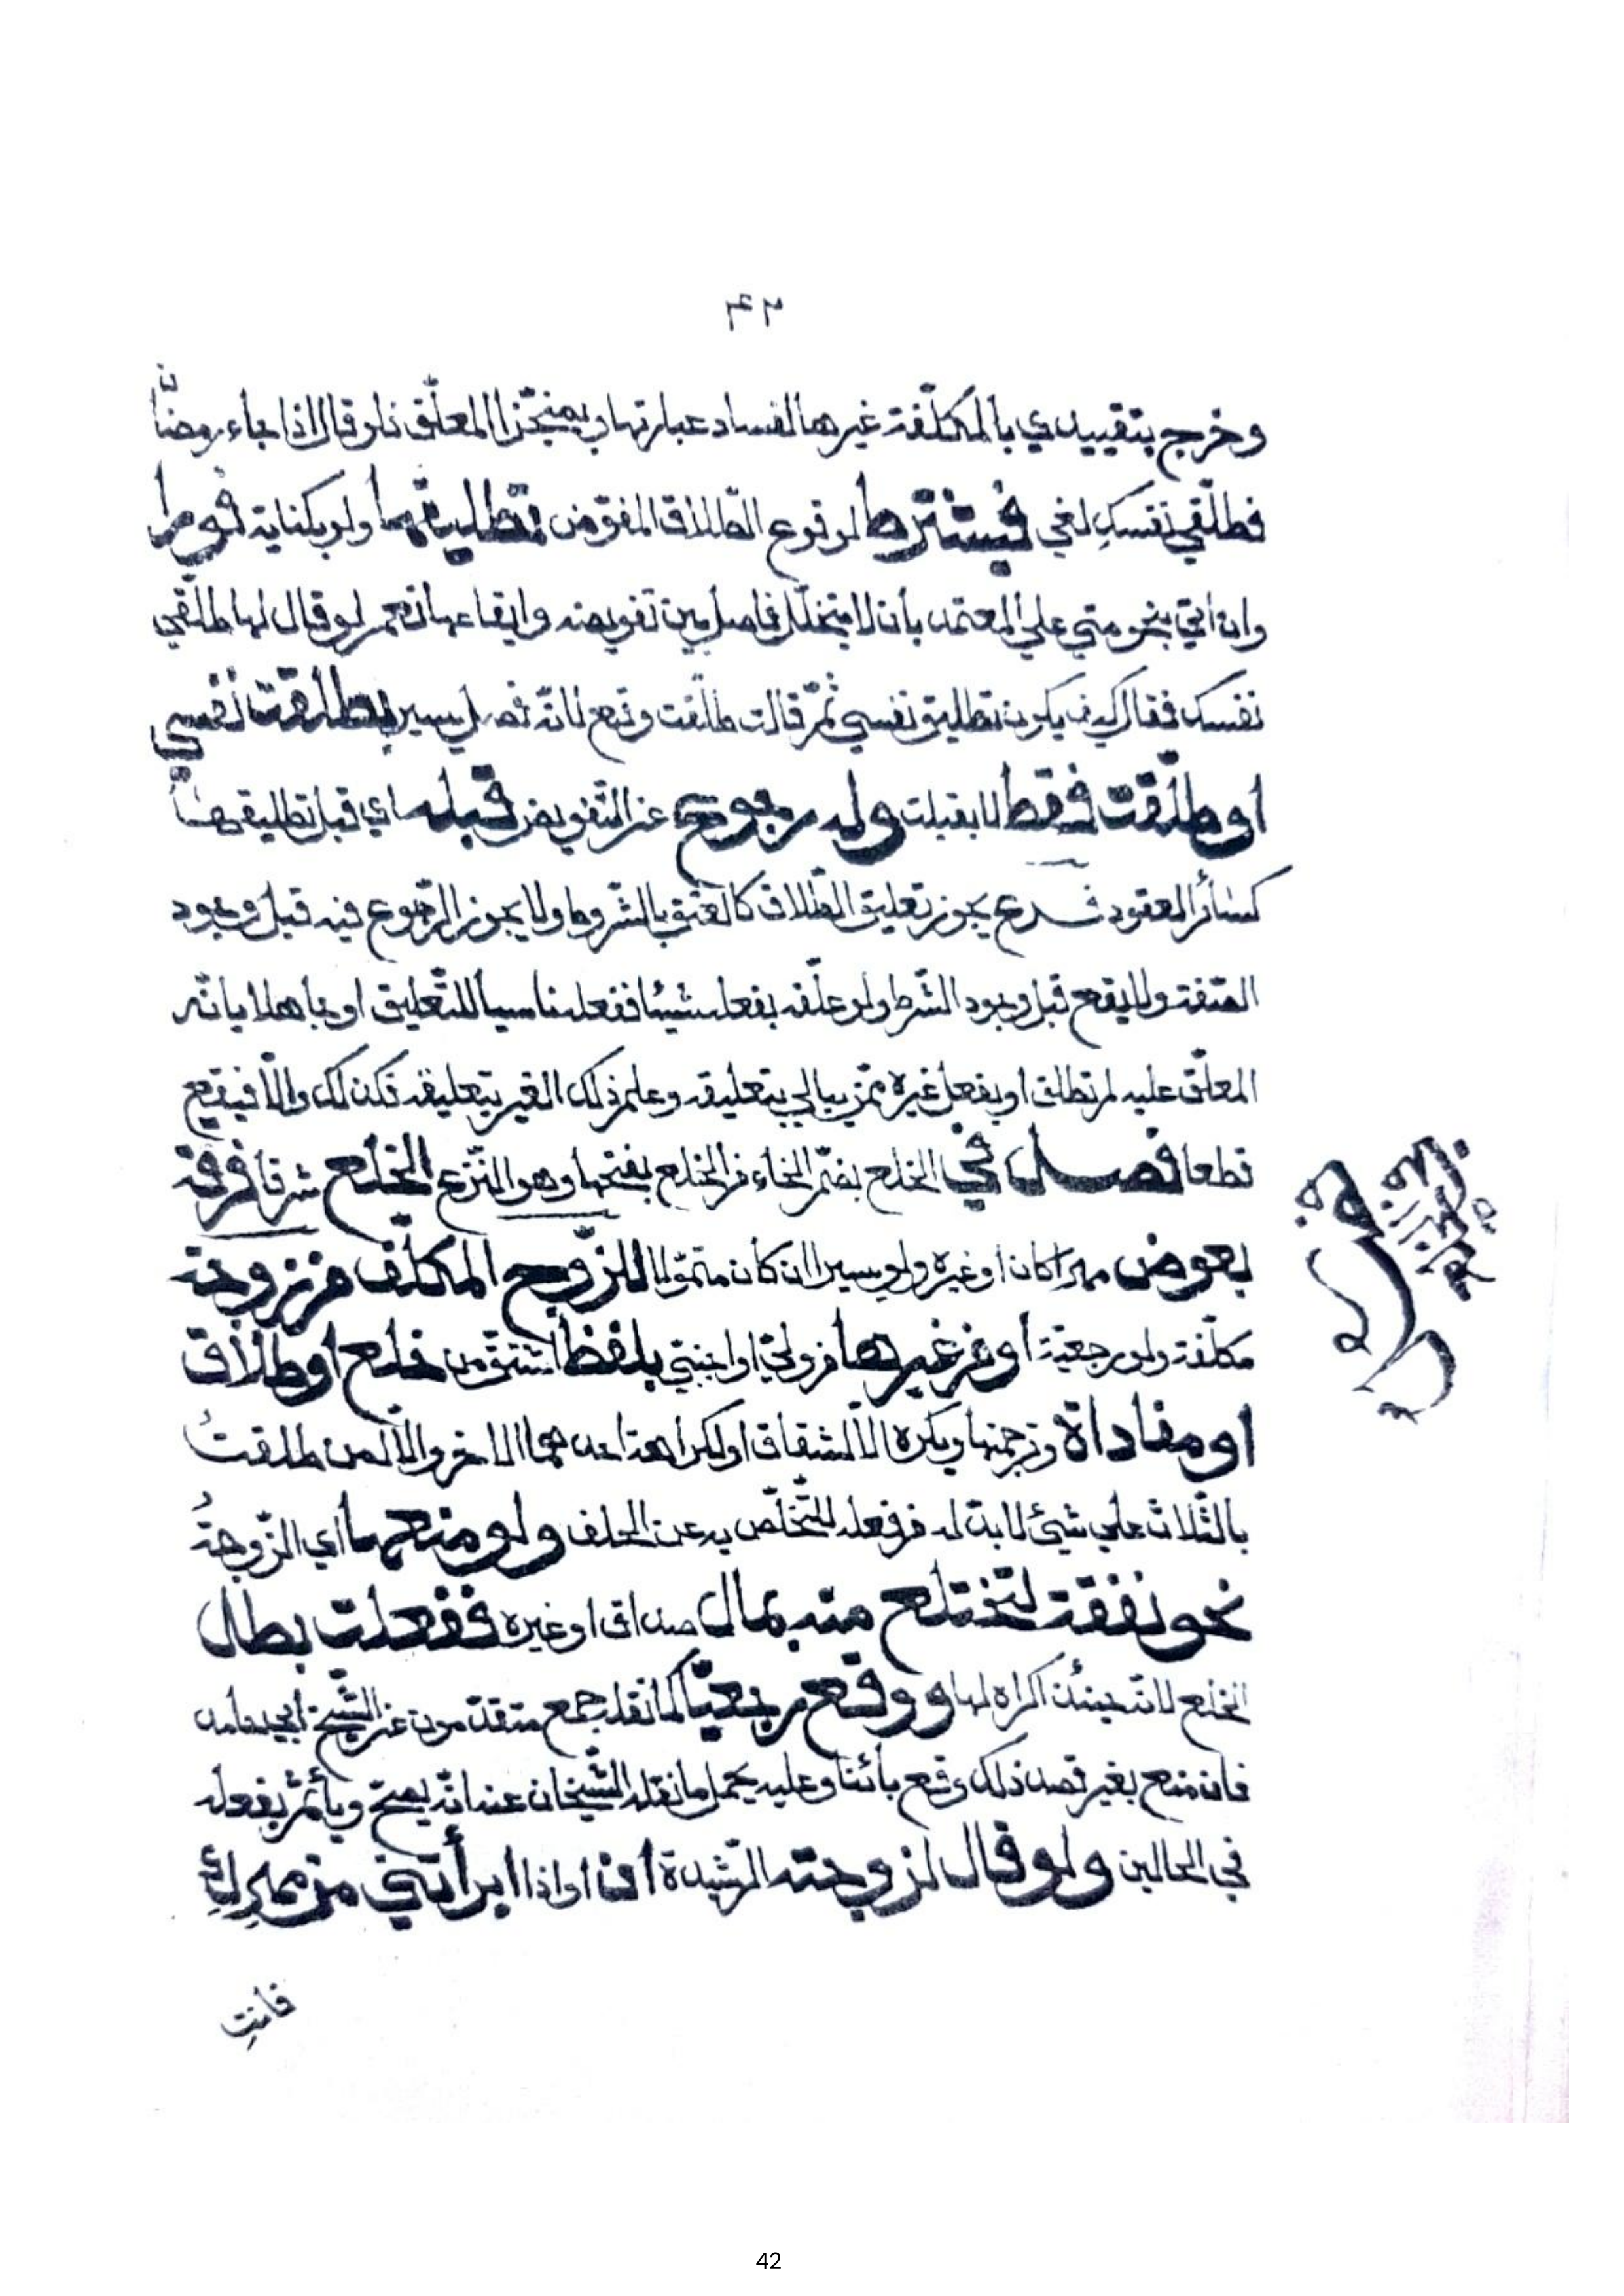 ٤٢
وخرج بتقييدي بالمكلّفة غيرها لفساد عبارتها وبمنجّز المعلّق فلو قال اذا جاء رمضان
فطلّقي نفسكِ لغي فيشترط لوقوع الطّلاق المفوّض تطليقها ولو بكناية فورا
وان اتي بنحو متي علي المعتمد بأن لا يتخلّل فاصل بين تفويضه وايقاعها نعم لو قال لها طلّقي
نفسك فقالت كيف يكون تطليق نفسي ثمّ قالت طلّقت وقع لانّه فصل يسير بطلّقت نفسي
او طلّقت فقط لا بقبلت وله رجوع عن التّفويض قبله اي قبل تطليقها
كسائر العقود فرع يجوز تعليق الطّلاق كالعتق بالشّروط ولا يجوز الرّجوع فيه قبل وجود
الصّفة ولا يقع قبل وجود الشّرط ولو علّقه بفعله شيئا ففعله ناسيا للتّعليق او جاهلا بانّه
المعلّق عليه لم تطلق او بفعل غيره ممّن يبالي بتعليقه وعلم ذلك الغير بتعليقه فكذلك والّا فيقع
قطعا فصل في الخلع بضمّ الخاء من الخلع بفتحها وهو النّزع الخلع شرعا فرقة
بعوض مهرا كان او غيره ولو يسيرا ان كان متموّلا للزّوج المكلّف من زوجة
مكلّفة ولو رجعيّة او من غيرها من وليّ او اجنبيّ بلفظ اشتقّ من خلع او طلاق
او مفاداة وترجمتها ويكره الّا لشقاق او لكراهة احدهما الاخر والّا لمن طلقتُ
بالثّلاث علي شيئ لا بدّ له من فعله للتّخلّص به عن الحلف ولو منعها اي الزّوجةُ
نحو نفقة لتختلع منه بمال صداق او غيره ففعلت بطل
الخلع لانّه حينئذ اكراه لها ووقع رجعيّا كما نقله جمع متقدّمون عن الشّيخ ابي حامد
فان منع بغير قصد ذلك وقع بائنا وعليه يحمل ما نقله الشّيخان عنه انّه يصحّ ويأثم بفعله
في الحالين ولو قال لزوجته الرّشيدة ان او اذا ابرأتني من مهركِ
فانتِ
42